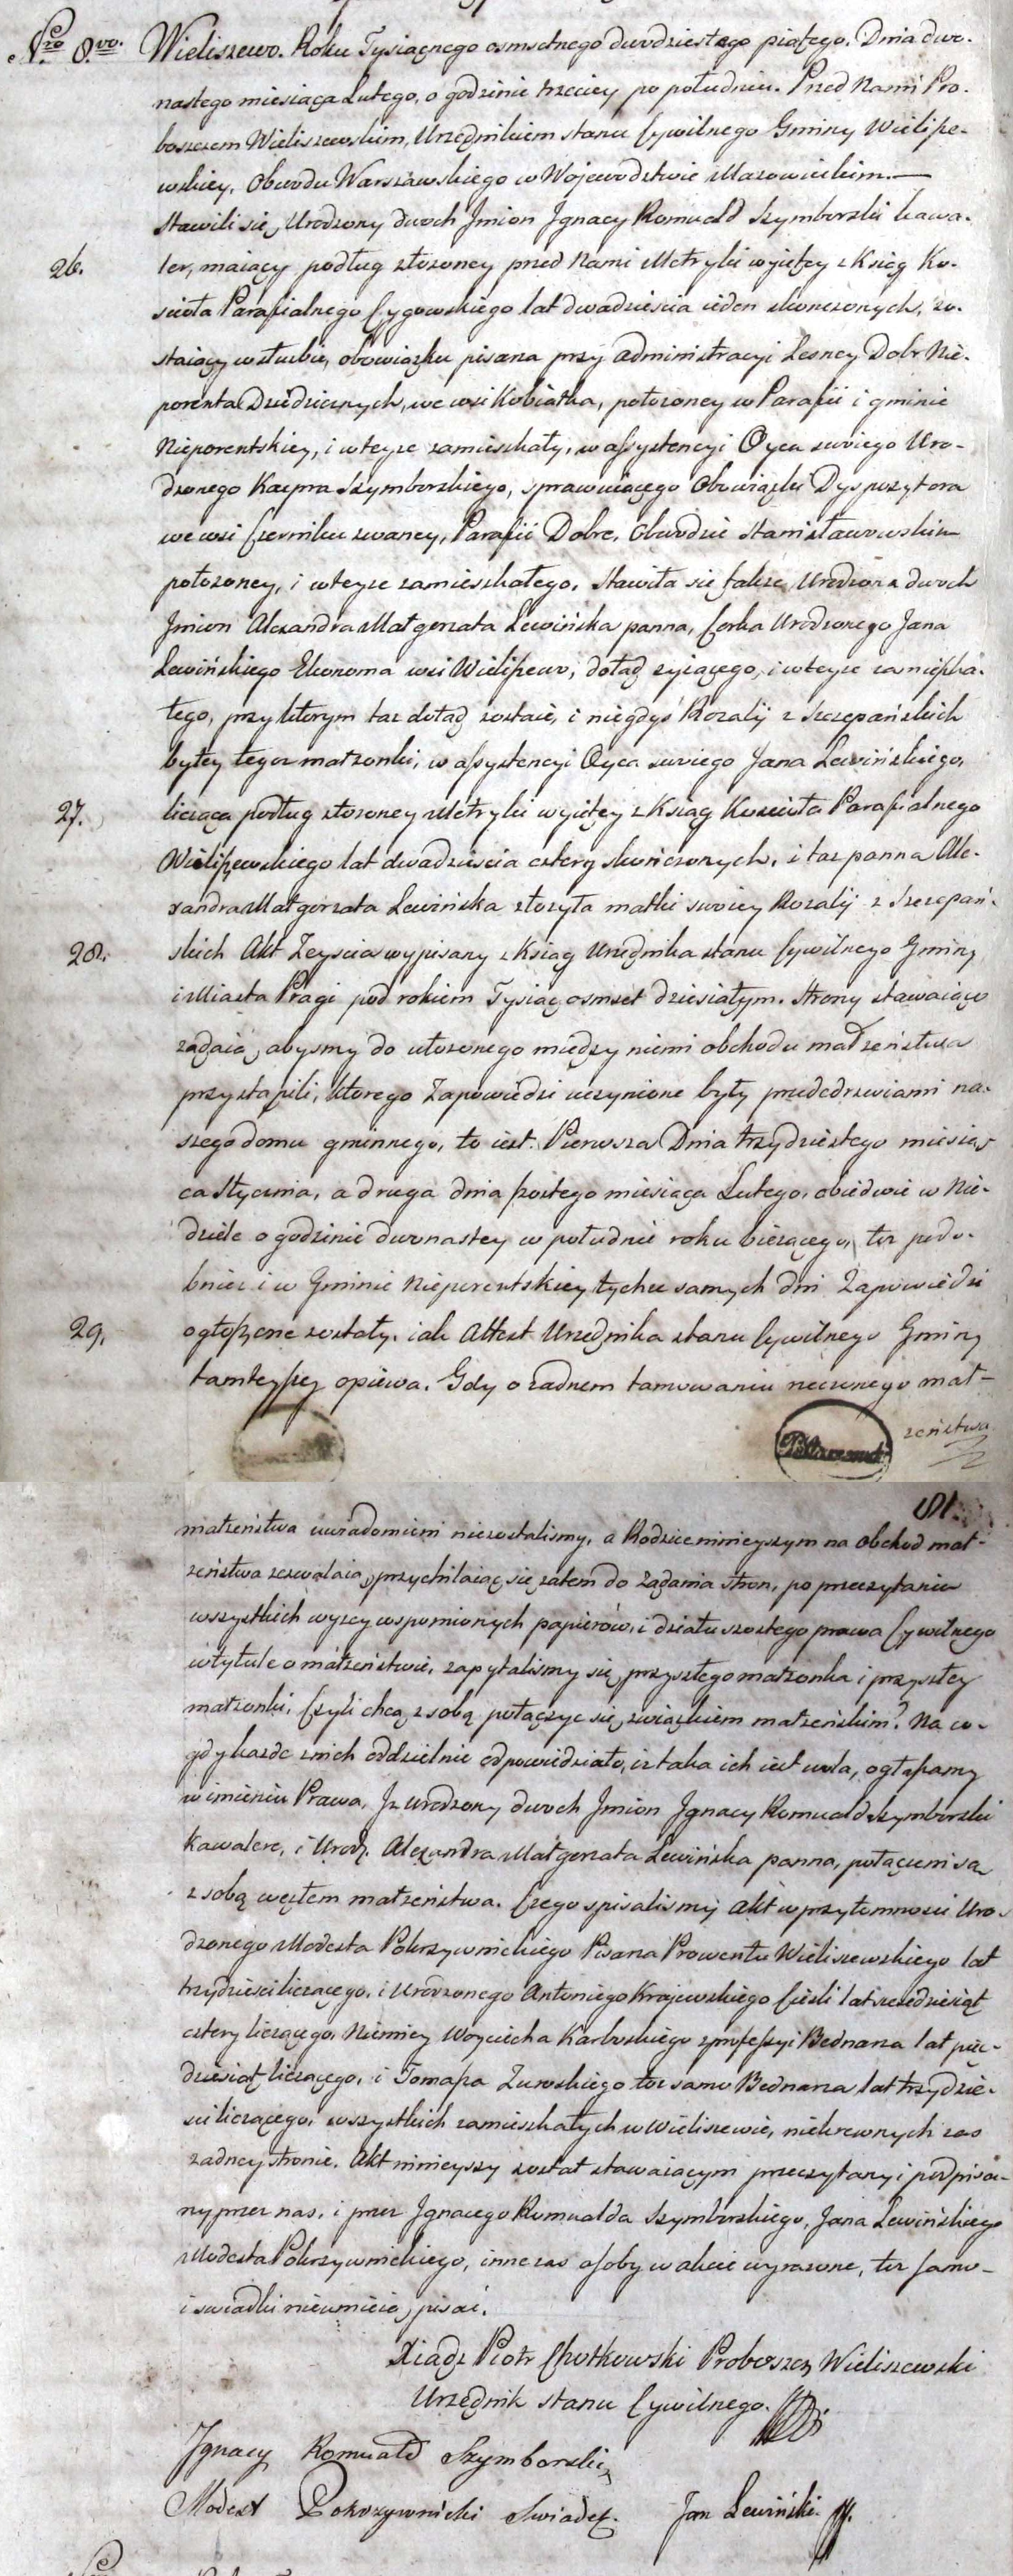 Nro 8vo. Wieliszewo. Roku Tysiącnego osmsetnego dwódziestego piątego. Dnia dwu-
nastego miesiąca Lutego, o godzinie trzeciey po południu. Przed Nami Pro-
boszczem Wieliszewskim, Urzędnikiem stanu Cywilnego Gminy Wielisze-
wskiey, Obwodu Warszawskiego w Wojewodztwie Mazowieckim.—
Stawili się, Urodzony dwoch Jmion Jgnacy Romuald Szymborski kawa-
26. ler, maiący podług złożoney przed Nami Metryki wyiętey z Ksiąg Ko-
scioła Parafialnego Cygowskiego lat dwadziescia ieden skonczonych, zo-
staiący w służbie, obowiązku pisarza przy Administracyi Lesney Dobr Nie-
porenta Dziedzicznych, we wsi Kobiałka, położoney w Parafii i gminie
Nieporentskiey, i w teyze zamieszkały, w assystencyi Oyca swoiego Uro-
dzonego Kacpra Szymborskiego, sprawuiącego Obowiązki Dyspozytora
we wsi Czerniku zwaney, Parafii Dobre, Obwodzie Stanisławowskim
położoney, i w teyze zamieszkałego. Stawiła się także, Urodzona dwoch
Jmion Alexandra Małgorzata Lewińska panna, Corka Urodzonego Jana
Lewińskiego Ekonoma wsi Wieliszewo, dotąd zyiącego, i w teyze zamieszka-
łego, przy ktorym taz dotąd zostaie, i niegdyś Rozalij z Szczepańskich
byłey tegoz małzonki, w assystencyi Oyca swoiego Jana Lewińskiego,
27. licząca podług złożoney Metryki wyiętey z Ksiąg Kościoła Parafialnego
Wieliszewskiego lat dwadziescia cztery skończonych, i taz panna Ale-
xandra Małgorzata Lewińska złożyła matki swoiey Rozalij z Szczepań-
28. skich Akt Zeyscia wypisany z Ksiąg Urzędnika stanu Cywilnego Gminy
i Miasta Pragi pod rokiem Tysiąc osmset dziesiątym. Strony stawaiące
ządaią, abysmy do ułożonego między niemi obchodu małżeństwa
przystąpili, ktorego Zapowiedzi uczynione były przededrzwiami na-
szego domu gminnego, to iest: Pierwsza Dnia trzydziestego miesią-
ca Stycznia, a druga dnia szostego miesiąca Lutego, obiedwie w Nie-
dziele o godzinie dwunastey w południe roku biezącego, tez podo-
bniez i w Gminie Nieporentskiey tychze samych dni Zapowiedzi
29. ogłoszone zostały, iak Attest Urzędnika stanu Cywilnego Gminy
tamteyszey opiewa. Gdy o zadnem tamowaniu rzeczonego mał-
zeństwa
81.
małżeństwa uwiadomieni niezostalismy, a Rodzice ninieyszym na obchod mał-
zeństwa zezwalaią, przychilaiąc się zatem do Ządania stron, po przeczytaniu
wszystkich wyzey wspomionych papierów, i działu szostego prawa Cywilnego
w tytule o małżeństwie, zapytalismy się przyszłego małzonka i przyszłey
małzonki, Czyli chcą z sobą połączyc się związkiem małzeńskim? Na co
gdy kazde z nich oddzielnie odpowiedziało, iz taka ich iest wola, ogłaszamy
w imieniu Prawa, Jz urodzony dwoch Jmion Jgnacy Romuald Szymborski
Kawaler, i Urodz. Alexandra Małgorzata Lewińska panna, połączeni są
z sobą węzłem małzeństwa. Czego spisalismy Akt w przytomnosci Uro-
dzonego Modesta Pokrzywnickiego Pisarza Prowentu Wieliszewskiego lat
trzydzieści liczącego, i Urodzonego Antoniego Krajewskiego Cieśli lat szesdziesiąt
cztery liczącego, Niemniey Woyciecha Karbowskiego z professyi Bednarza lat pięć-
dziesiąt liczącego, i Tomasza Zurowskiego toz samo Bednarza lat trzydzie-
sci liczącego, wszystkich zamieszkałych w Wieliszewie, niekrewnych zas
zadney stronie. Akt ninieyszy został stawaiącym przeczytany i podpisa-
ny przez nas, i przez Jgnacego Romualda Szymborskiego, Jana Lewińskiego
Modesta Pokrzywnickiego, inne zas osoby w akcie wyrazone, tez samo
i swiadki nieumieią pisać.
Xiądz Piotr Chotkowski Proboszcz Wieliszewski
Urzędnik stanu Cywilnego.
Jgnacy Romuald Szymborski
Modest Pokrzywnicki Swiadek. Jan Lewiński